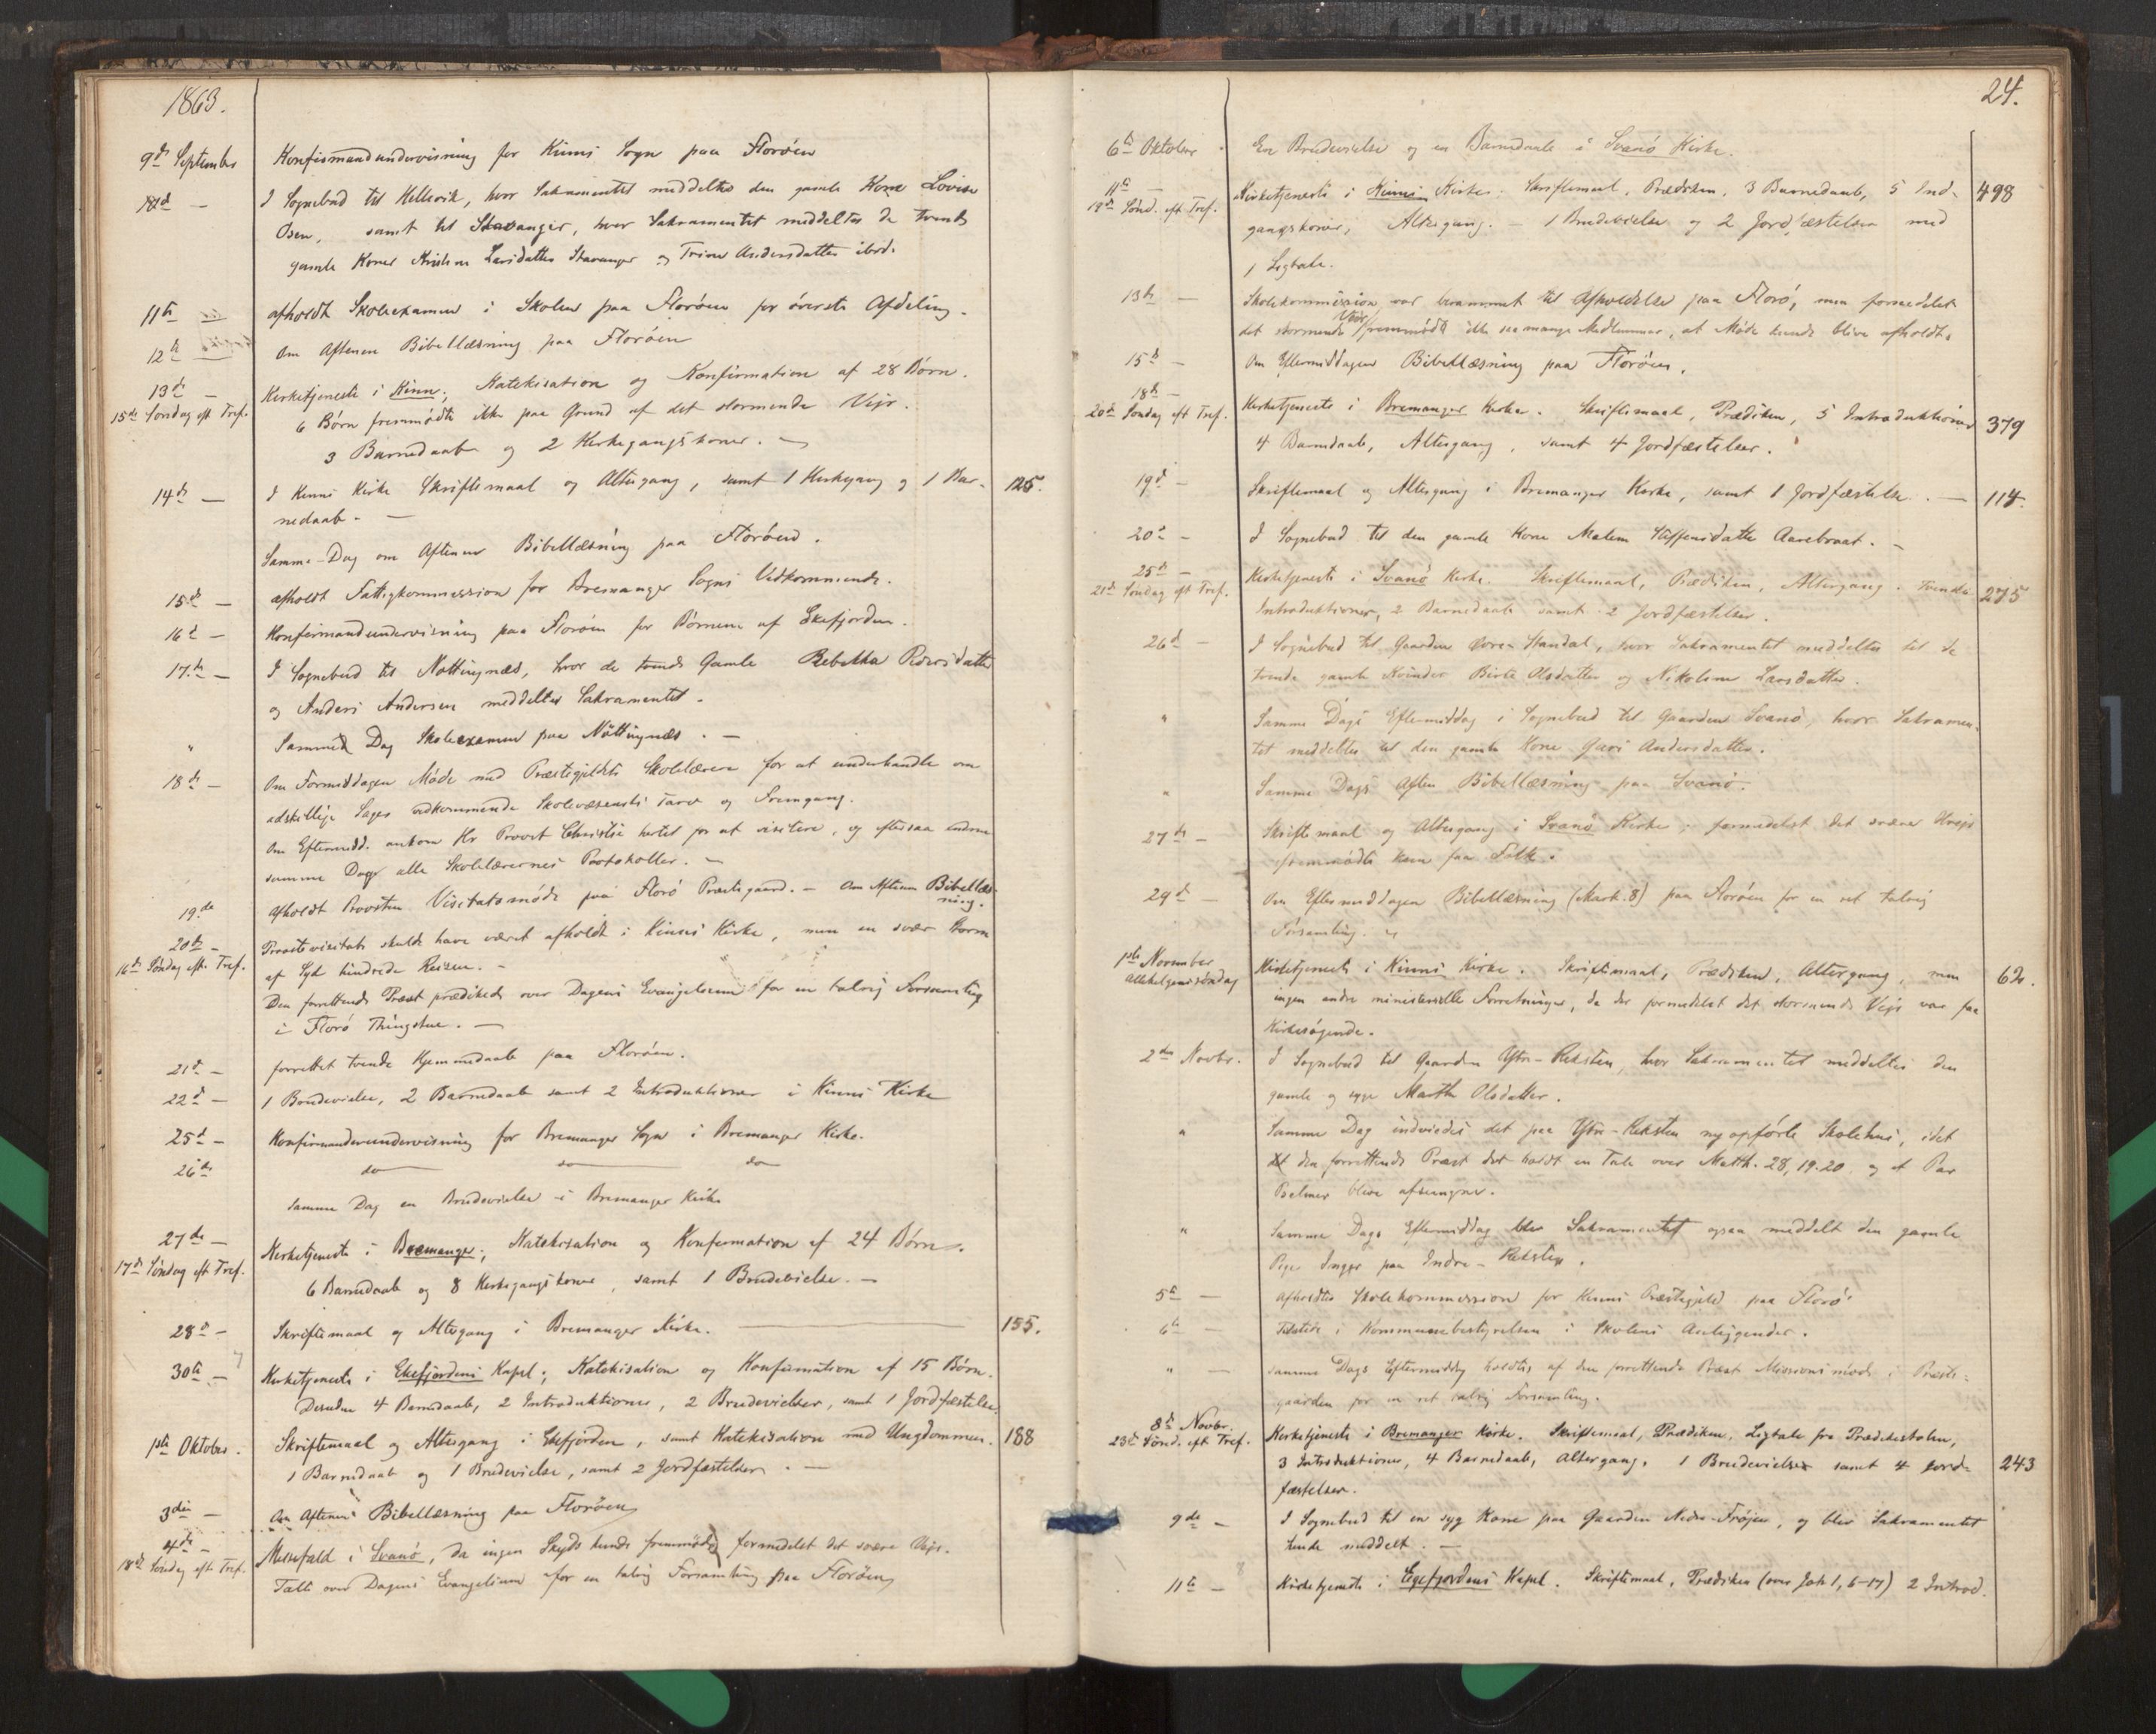 1863.
9de September Konfirmandundervisning for Kinns Sogn paa Florøen
10de — I Sognebud til Hellevik, hvor Sakramentet meddeltes den gamle Kone Lovise
Osen, samt til Stavanger, hvor Sakramentet meddeltes de tvende
gamle Koner Larsdatter Stavanger og Trine Andersdatter ibid.
11te — afholdt Skoleexamen i Skolen paa Florøen for øverste Afdeling.
12te — Om Aftenen Bibellæsning paa Florøen
13de — Kirketjeneste i Kinn; Katekisation og Konfirmation af 28 Børn.
15de Søndag eft Tref. 6 Børn fremmødte ikke paa Grund af det stormende Vejr.
3 Barnedaab og 2 Kirkegangskoner. —
14de — I Kinns Kirke Skriftemaal og Altergang, samt 1 Kirkegang og 1 Bar- 125.
nedaab. —
Samme Dag om Aftenen Bibellæsning paa Florøen.
15de — afholdt Fattigkommission for Bremanger Sogns Vedkommende.
16de — Konfirmandundervisning paa Florøen for Børnene af Ekefjorden.
17de — I Sognebud til Nøttingnæs, hvor de tvende Gamle Rebekka Pedersdatter
og Anders Andersen meddeltes Sakramentet.
" Samme Dag Skoleexamen paa Nøttingnæs. —
18de — Om Formiddagen Møde med Præstegjeldets Skolelærere for at underhandle om
adskillige Sager vedkommende Skolevæsenets Tarv og Fremgang.
Om Eftermidd. ankom Hr Provst Christie hertil for at visitere, og eftersaa endnu
samme Dag alle Skolelærernes Protokoller. —
19de Afholdt Provsten Visitatsmøde paa Florø Præstegaard. — Om Aftenen Bibellæs-
ning.
20de — Provstevisitats skulde have været afholdt i Kinns Kirke, men en svær Storm
16de Søndag eft. Tref. af Syd hindrede Reisen. —
Den forrettende Præst prædikede over Dagens Evangelium for en talrig Forsamling
i Florø Thingstue. —
21de — forrettet tvende Hjemmedaab paa Florøen.
22de — 1 Brudevielse, 2 Barnedaab samt 2 Introduktioner i Kinns Kirke
25de — Konfirmandundervisning for Bremanger Sogn i Bremanger Kirke.
26de do do do
samme Dag en Brudevielse i Bremanger Kirke
27de — Kirketjeneste i Bremanger; Katekisation og Konfirmation af 24 Børn.
17de Søndag eft Tref. 6 Barnedaab og 8 Kirkegangskoner, samt 1 Brudevielse. —
28de — Skriftemaal og Altergang i Bremanger Kirke. — 155.
30te — Kirketjeneste i Ekefjordens Kapel; Katekisation og Konfirmation af 15 Børn.
Desuden 4 Barnedaab, 2 Introduktioner, 2 Brudevielser, samt 1 Jordfæstelse.
1ste Oktober. Skriftemaal og Altergang i Ekefjorden, samt Katekisation med Ungdommen. 188
1 Barnedaab og 1 Brudevielse, samt 2 Jordfæstelser. —
3die — Om Aftenen Bibellæsning paa Florøen
4de — Messefald i Svanø, da ingen Skyds kunde fremmøde formedelst det svære Vejr.
18de Søndag eft Tref. Talte over Dagens Evangelium for en talrig Forsamling paa Florøen
24.
6te Oktober En Brudevielse og en Barnedaab i Svanø Kirke.
11te — Kirketjeneste i Kinns Kirke. Skriftemaal, Prædiken, 3 Barnedaab, 5 Ind- 498
19de Sønd. eft Tref. gangskoner, Altergang. — 1 Brudevielse og 2 Jordfæstelser med
1 Ligtale.
13de — Skolekommission var berammet til Afholdelse paa Florø, men formedelst
det stormende Vejr fremmødte ikke saa mange Medlemmer, at Møde kunde blive afholdt.
15de — Om Eftermiddagen Bibellæsning paa Florøen.
18de —
20de Søndag eft Tref. Kirketjeneste i Bremanger Kirke. Skriftemaal, Prædiken, 5 Introduktioner 379
4 Barnedaab, Altergang, samt 4 Jordfæstelser.
19de — Skriftemaal og Altergang i Bremanger Kirke, samt 1 Jordfæstelse. — 114.
20de — I Sognebud til den gamle Kone Malene Steffensdatter Aarebraat. —
25de — Kirketjeneste i Svanø Kirke. Skriftemaal, Prædiken, Altergang. tvende 275
21de Søndag eft Tref. Introduktioner, 2 Barnedaab samt 2 Jordfæstelser.
26de — I Sognebud til Gaarden Standal, hvor Sakramentet meddeltes til de
tvende gamle Kvinder Birte Olsdatter og Nikoline Larsdatter.
" Samme Dags Eftermiddag i Sognebud til Gaarden Svanø, hvor Sakramen-
tet meddeltes til den gamle Kone Guri Andersdatter.
" Samme Dags Aften Bibellæsning paa Svanø.
27de — Skriftemaal og Altergang i Svanø Kirke; formedelst det svære Vejr
fremmødte kun faa Folk.
29de — Om Eftermiddagen Bibellæsning (Mark. 8) paa Florøen for en ret talrig
Forsamling. —
1ste November Kirketjeneste i Kinns Kirke. Skriftemaal, Prædiken, Altergang, men 62.
Allehelgenssøndag ingen andre ministerielle Forretninger, da der formedelst det stormende Vejr var faa
Kirkesøgende.
2den Novbr. I Sognebud til Gaarden Ytre-Reksten, hvor Sakramentet meddeltes den
gamle og syge Marthe Olsdatter.
" Samme Dag indviedes det paa Ytre-Reksten ny opførte Skolehus, idet
den forrettende Præst der holdt en Tale over Matth. 28, 19-20, og et Par
Psalmer bleve afsungne.
" Samme Dags Eftermiddag blev Sakramentet ogsaa meddelt den gamle
Pige Inger paa Indre-Reksten.
5te — Afholdtes Skolekommission for Kinns Præstegjeld paa Florø.
6te — Tilstede i Kommunebestyrelsen i Skolens Anliggender.
" — samme Dags Eftermiddag holdtes af den forrettende Præst Missionsmøde i Præste-
gaarden for en ret talrig Forsamling.
8de Novbr. Kirketjeneste i Bremanger Kirke. Skriftemaal, Prædiken, Ligtale fra Prædikestolen,
23de Sønd. eft Tref. 3 Introduktioner, 4 Barnedaab, Altergang. 1 Brudevielse samt 4 Jord- 243
fæstelser.
9de — I Sognebud til en syg Kone paa Gaarden Nedre-Frøjen, og blev Sakramentet
hende meddelt. —
11te — Kirketjeneste i Egefjordens Kapel. Skriftemaal, Prædiken (over Joh 1, 6-17) 2 Introd.